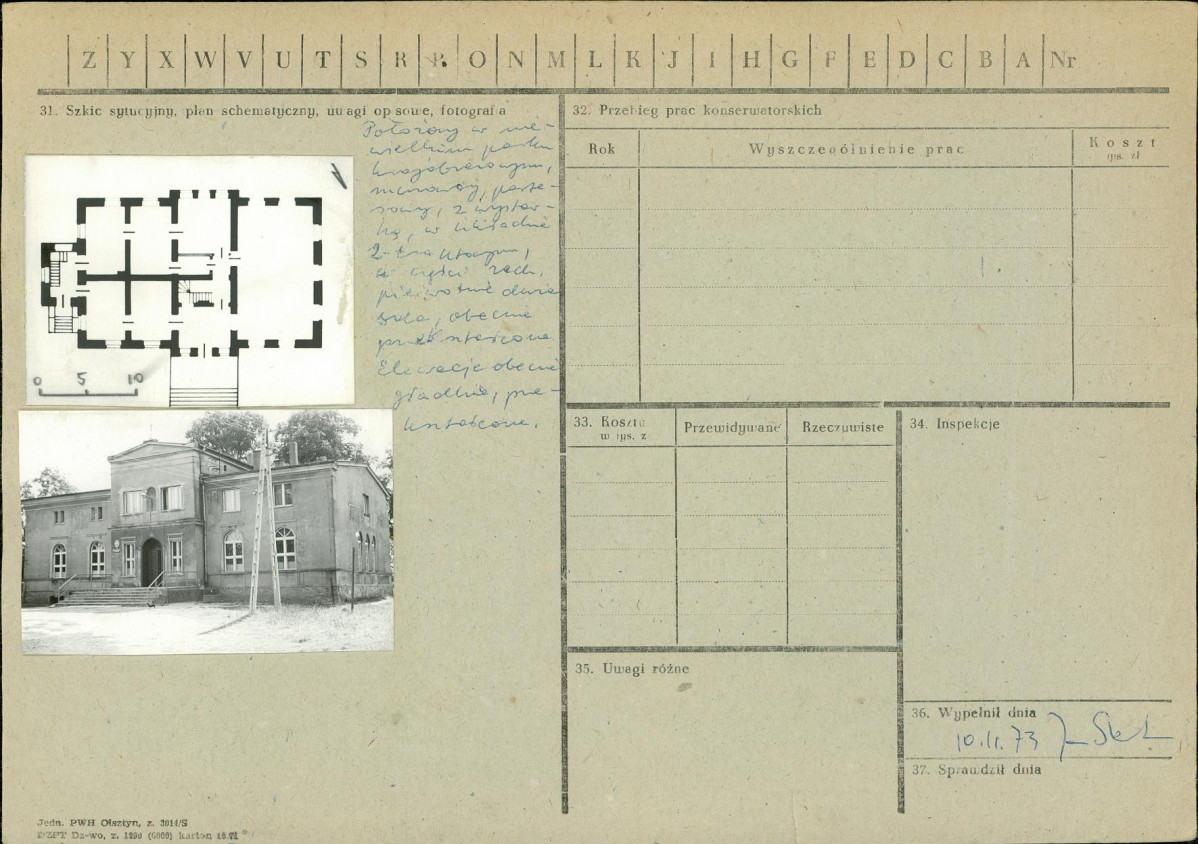 Z Y X W V U T S R P O N M L K J I H G F E D C B A Nr
31. Szkic sytucyjny, plan schematyczny, uwagi opisowe, fotografia
Położony w nie-
wielkim parku
krajobrazowym,
murowany, parte-
rowy, z wystaw-
ką, w układzie
2-traktowym,
w części zach.
pierwotnie duża
sala, obecnie
przekształcona.
Elewacje obecnie
gładkie, prze-
kształcone.
0 5 10
32. Przebieg prac konserwatorskich
Rok
Wyszczególnienie prac
Koszt
tys. zł
33. Koszty
w tys. z
Przewidywane
Rzeczywiste
34. Inspekcje
35. Uwagi różne
36. Wypełnił dnia
10.II.73
37. Sprawdził dnia
Jedn. PWH Olsztyn, z. 3014/S
DZPT Dz-wo, z. 1290 (6000) karton